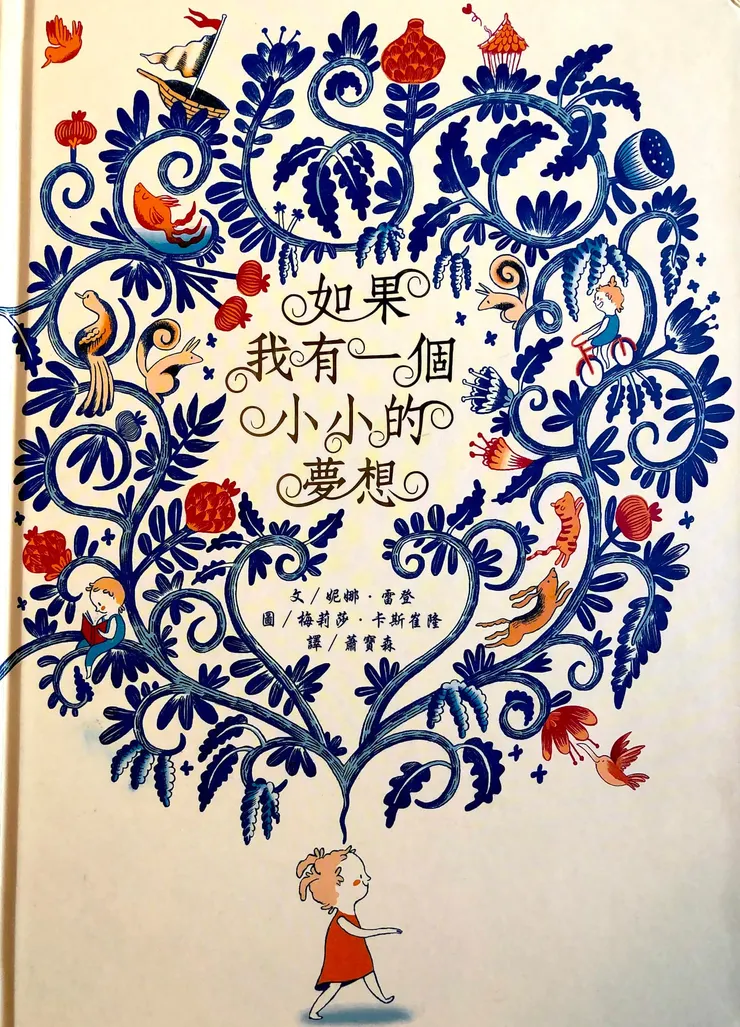 如果
我有一個
小小的
夢想
文／妮娜·雷登
圖／梅莉莎·卡斯崔隆
譯／蕭寶森